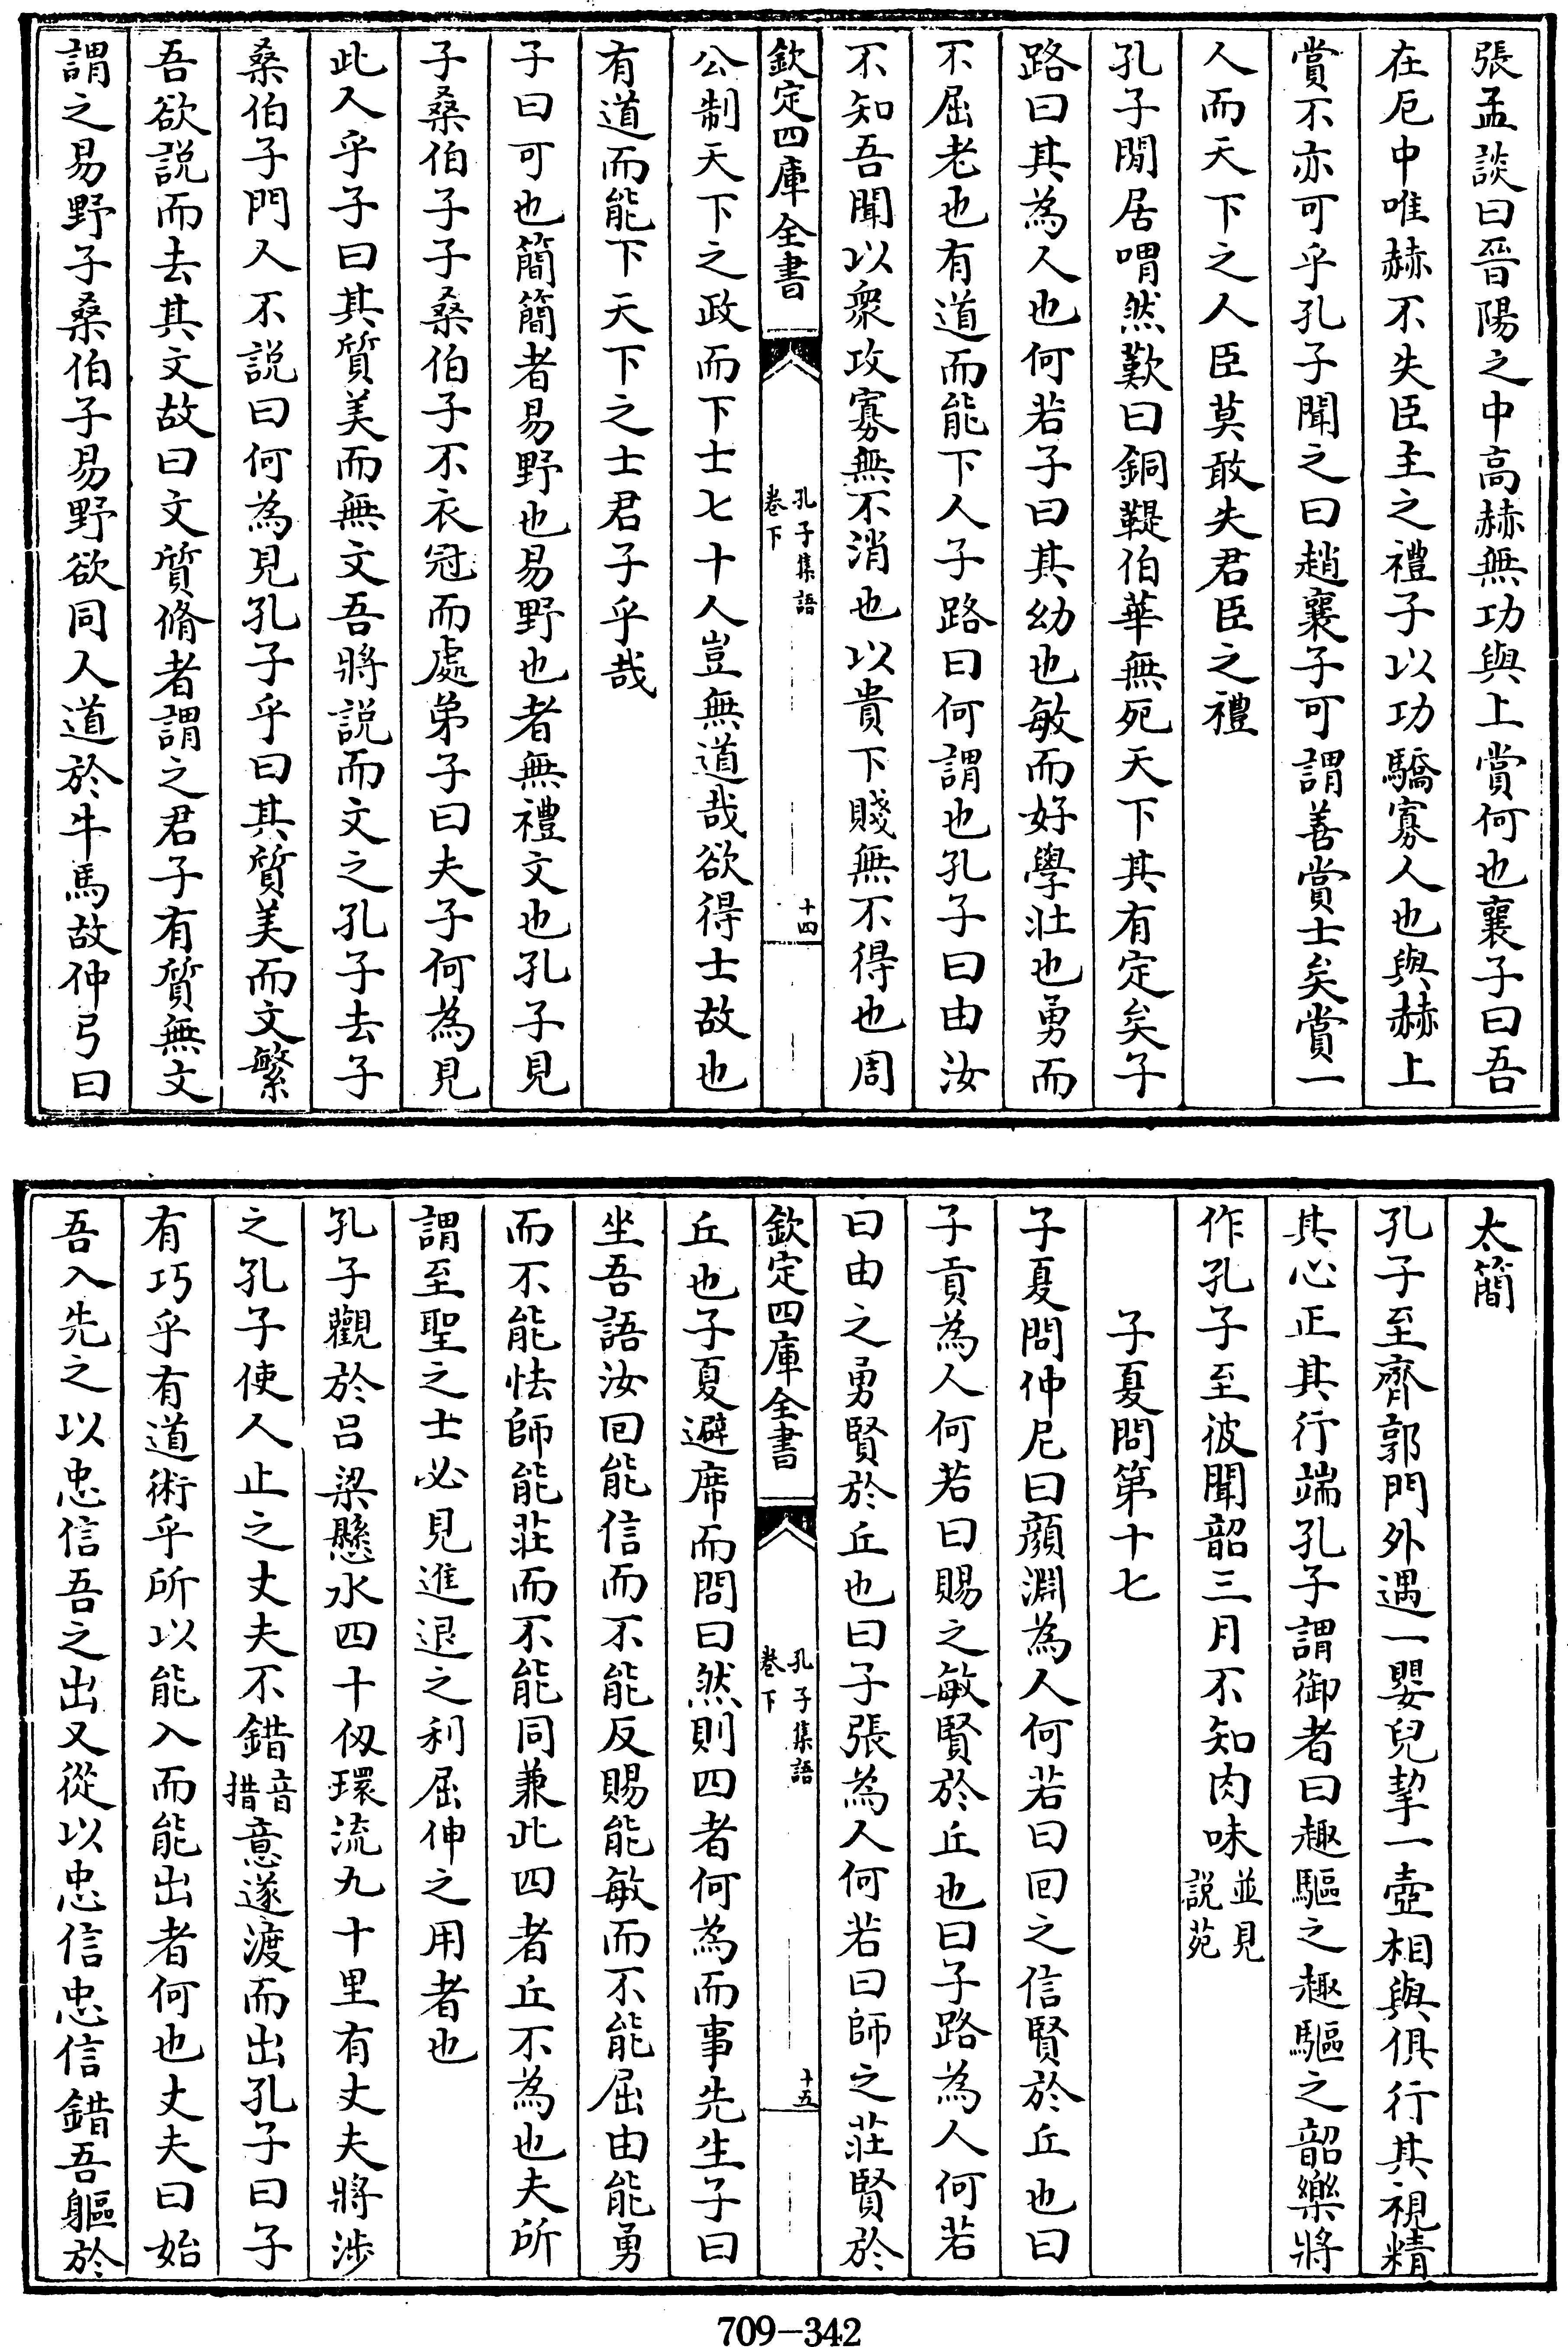 張孟談曰晉陽之中高赫無功與上賞何也襄子曰吾
在厄中唯赫不失臣主之禮子以功驕寡人也與赫上
賞不亦可乎孔子聞之曰趙襄子可謂善賞士矣賞一
人而天下之人臣莫敢失君臣之禮
孔子閒居喟然歎曰銅鞮伯華無死天下其有定矣子
路曰其為人也何若子曰其幼也敏而好學壯也勇而
不屈老也有道而能下人子路曰何謂也孔子曰由汝
不知吾聞以衆攻寡無不消也以貴下賤無不得也周
欽定四庫全書
孔子集語
卷下
十四
公制天下之政而下士七十人豈無道哉欲得士故也
有道而能下天下之士君子乎哉
子曰可也簡簡者易野也易野也者無禮文也孔子見
子桑伯子子桑伯子不衣冠而處弟子曰夫子何為見
此人乎子曰其質美而無文吾將説而文之孔子去子
桑伯子門人不説曰何為見孔子乎曰其質美而文繁
吾欲説而去其文故曰文質脩者謂之君子有質無文
謂之易野子桑伯子易野欲同人道於牛馬故仲弓曰
太簡
孔子至齊郭門外遇一嬰兒挈一壺相與俱行其視精
其心正其行端孔子謂御者曰趣驅之趣驅之韶樂將
作孔子至彼聞韶三月不知肉味並見説苑
子夏問第十七
子夏問仲尼曰顔淵為人何若曰回之信賢於丘也曰
子貢為人何若曰賜之敏賢於丘也曰子路為人何若
曰由之勇賢於丘也曰子張為人何若曰師之莊賢於
欽定四庫全書
孔子集語
卷下
十五
丘也子夏避席而問曰然則四者何為而事先生子曰
坐吾語汝回能信而不能反賜能敏而不能屈由能勇
而不能怯師能莊而不能同兼此四者丘不為也夫所
謂至聖之士必見進退之利屈伸之用者也
孔子觀於吕梁懸水四十仭環流九十里有丈夫將涉
之孔子使人止之丈夫不錯音措意遂渡而出孔子曰子
有巧乎有道術乎所以能入而能出者何也丈夫曰始
吾入先之以忠信吾之出又從以忠信忠信錯吾軀於
709-342